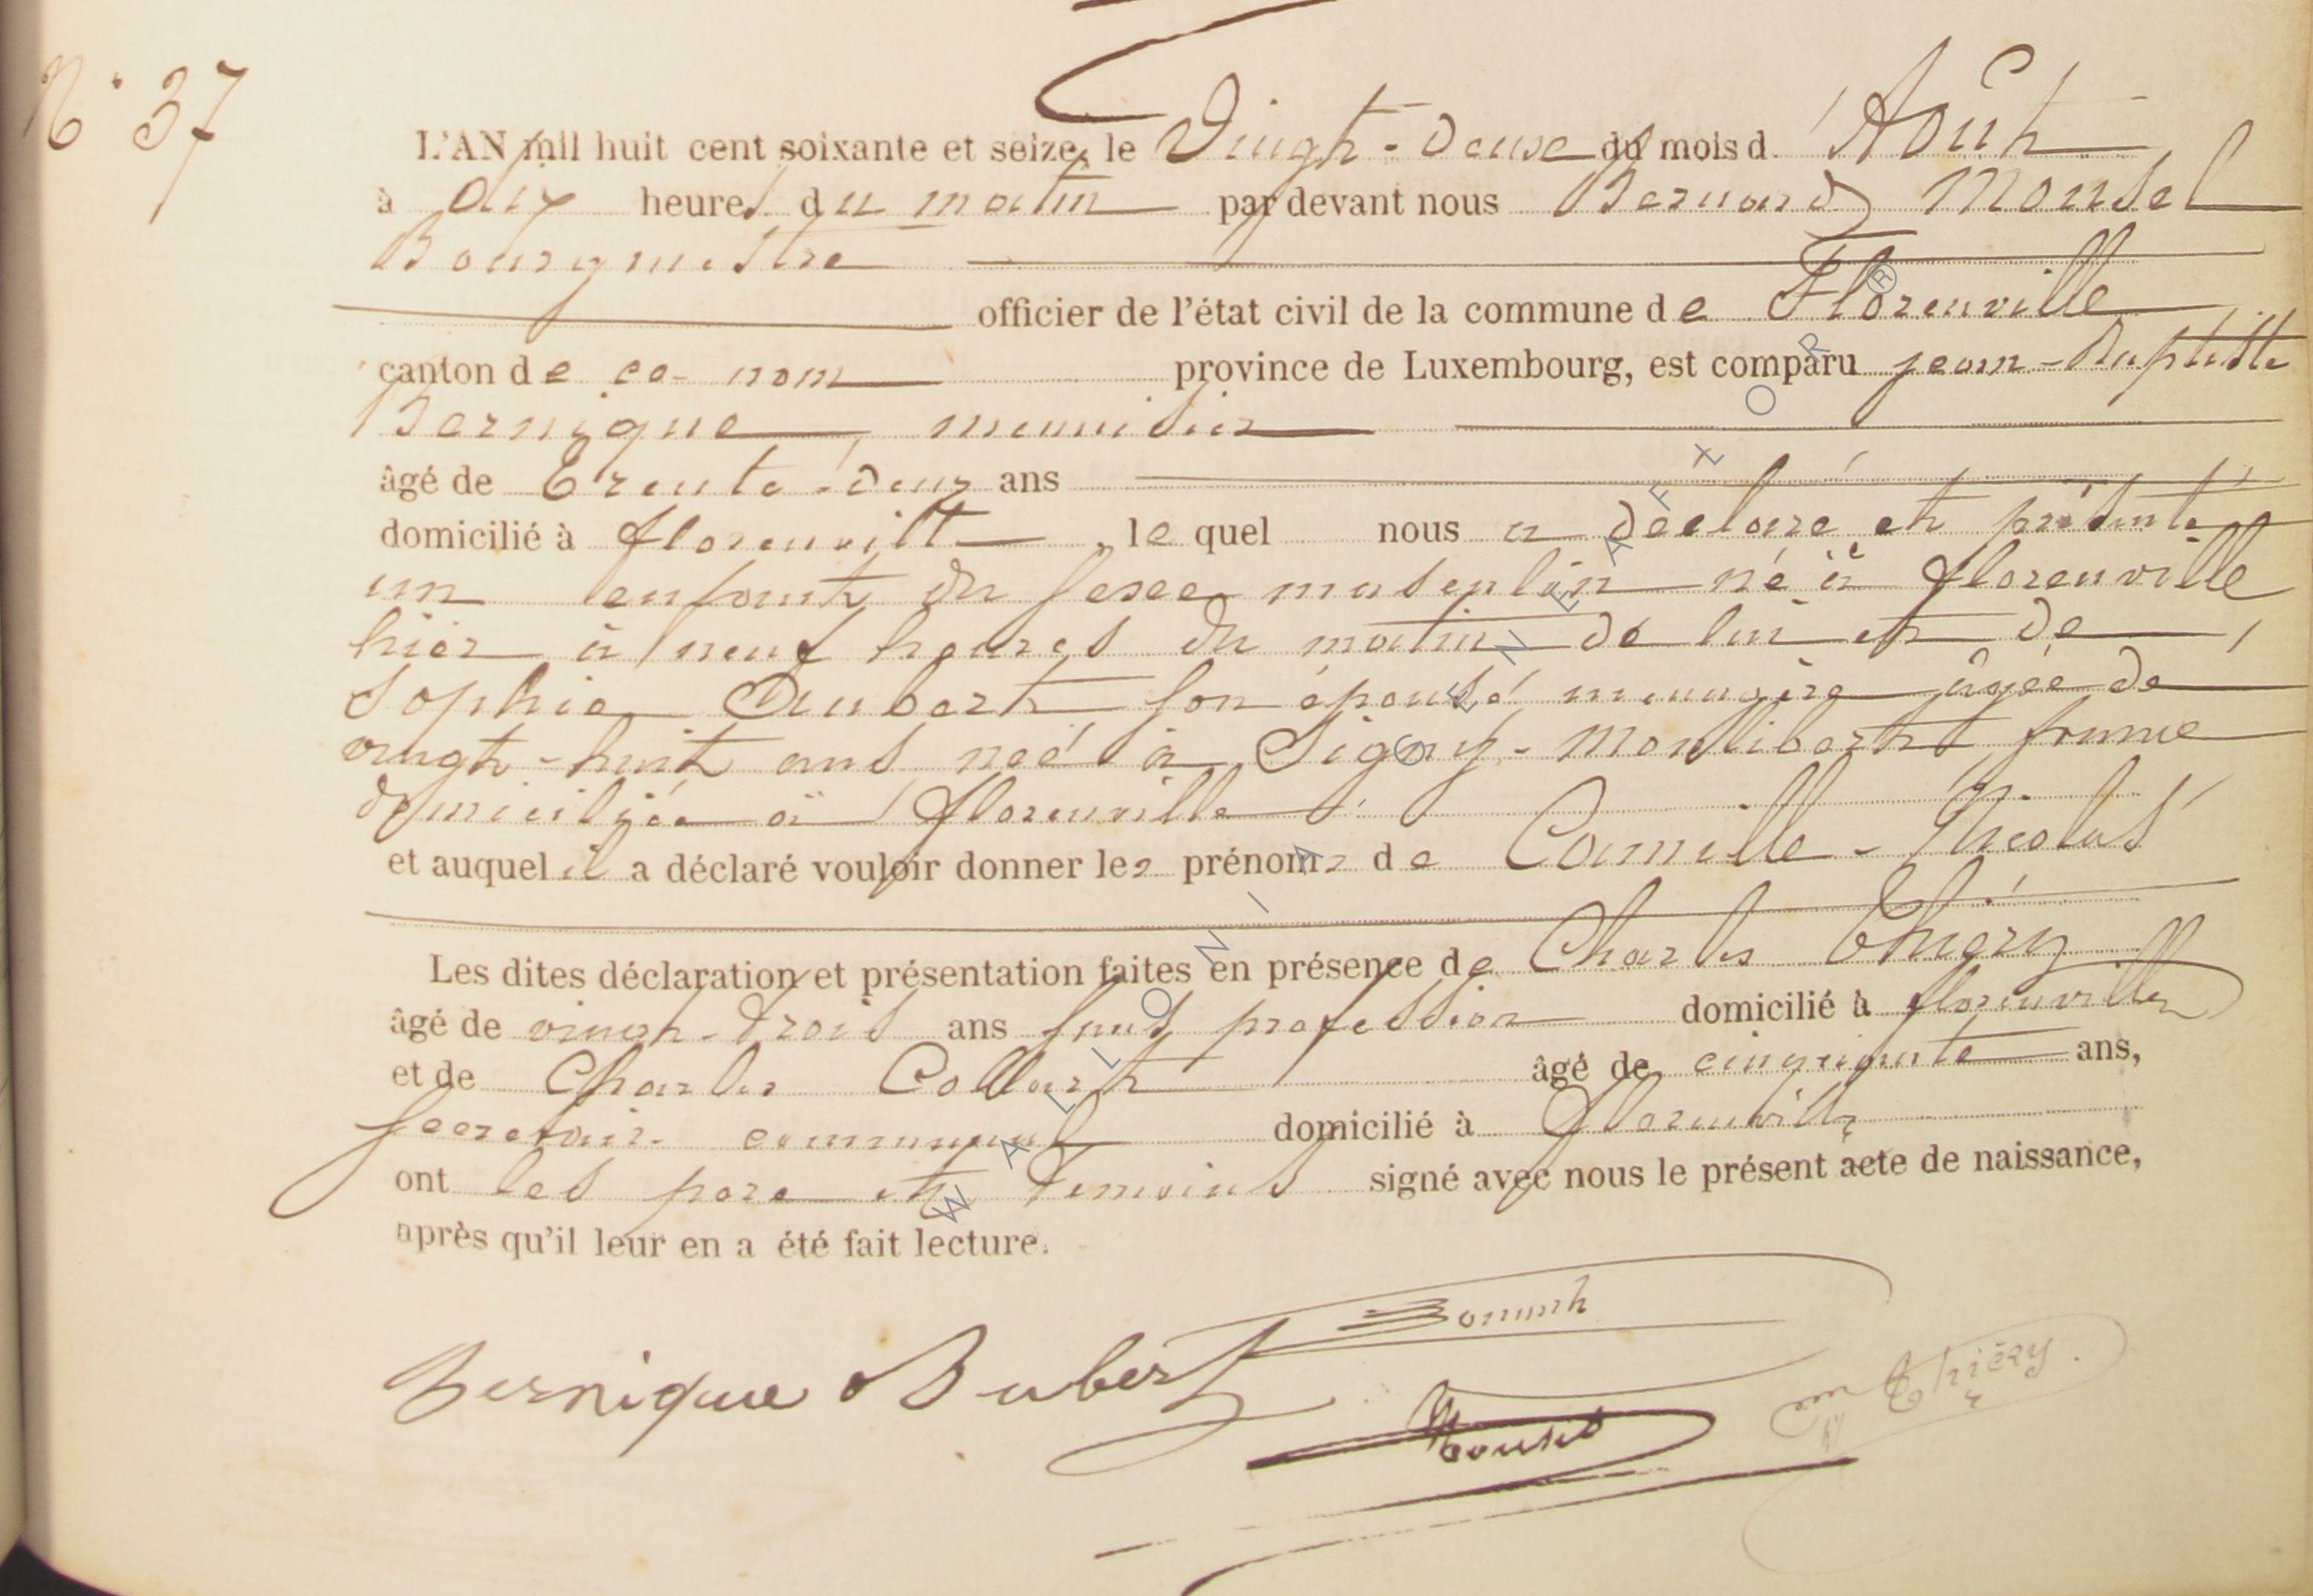 N° 37
L'AN mil huit cent soixante et seize, le Vingt-deux du mois d'Août
à dix heures du matin par devant nous Bernard Mousel
Bourgmestre
officier de l'état civil de la commune de Florenville
canton de ce nom province de Luxembourg, est comparu jean-Baptiste
Bernique, menuisier
âgé de Trente-deux ans
domicilié à florenville, le quel nous a déclaré et présenté
un enfant du sexe masculin né à florenville
hier à neuf heures du matin de lui et de
Sophie Aubert son épouse ménagère âgée de
vingt-huit ans née à Signy-Montlibert france
domiciliée à florenville
et auquel il a déclaré vouloir donner les prénoms de Camille-Nicolas
Les dites déclaration et présentation faites en présence de Charles Thiery
âgé de vingt-trois ans sans profession domicilié à florenville
et de Charles Collart âgé de cinquante ans,
secretaire communal domicilié à florenville
ont les pere et Temoins signé avec nous le présent acte de naissance,
après qu'il leur en a été fait lecture.
Bernique Aubert
Mousel
Thiéry
WALLONIA GENEAFTTOR ®